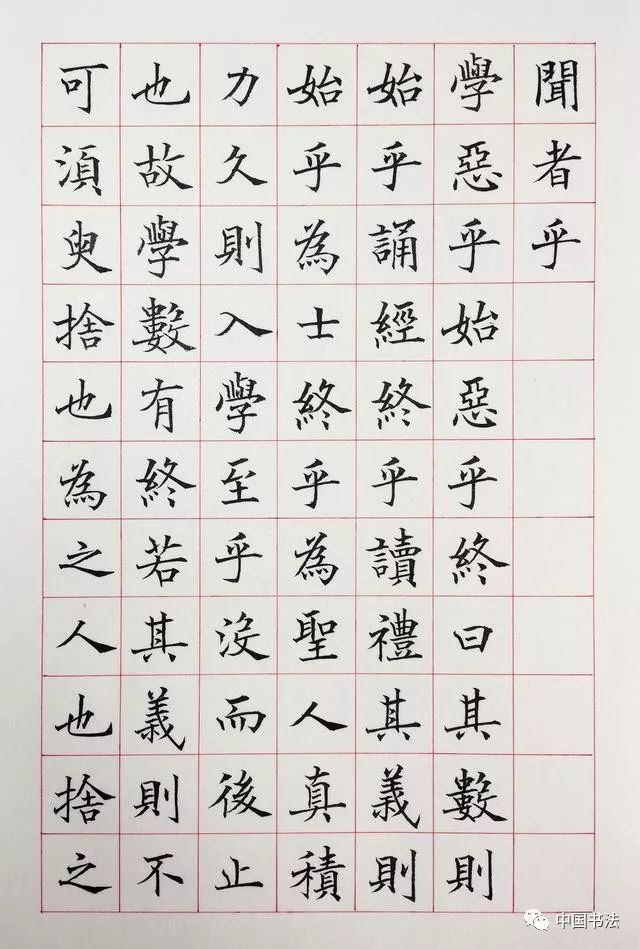 聞者乎
學惡乎始惡乎終曰其數則
始乎誦經終乎讀禮其義則
始乎為士終乎為聖人真積
力久則入學至乎沒而後止
也故學數有終若其義則不
可湏臾捨也為之人也捨之
中国书法